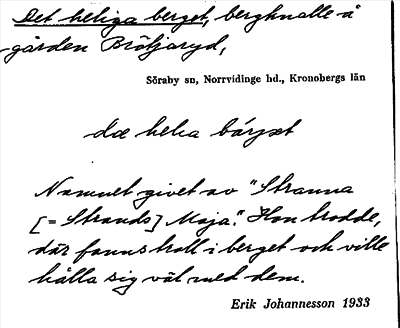 Det heliga berget, bergknalle å
gården Brötjaryd,
Söraby sn, Norrvidinge hd., Kronobergs län
dæ helia bärjet
Namnet givet av "Stranna
[= Strands] Maja". Hon trodde,
där fanns troll i berget och ville
hålla sig väl med dem.
Erik Johannesson 1933